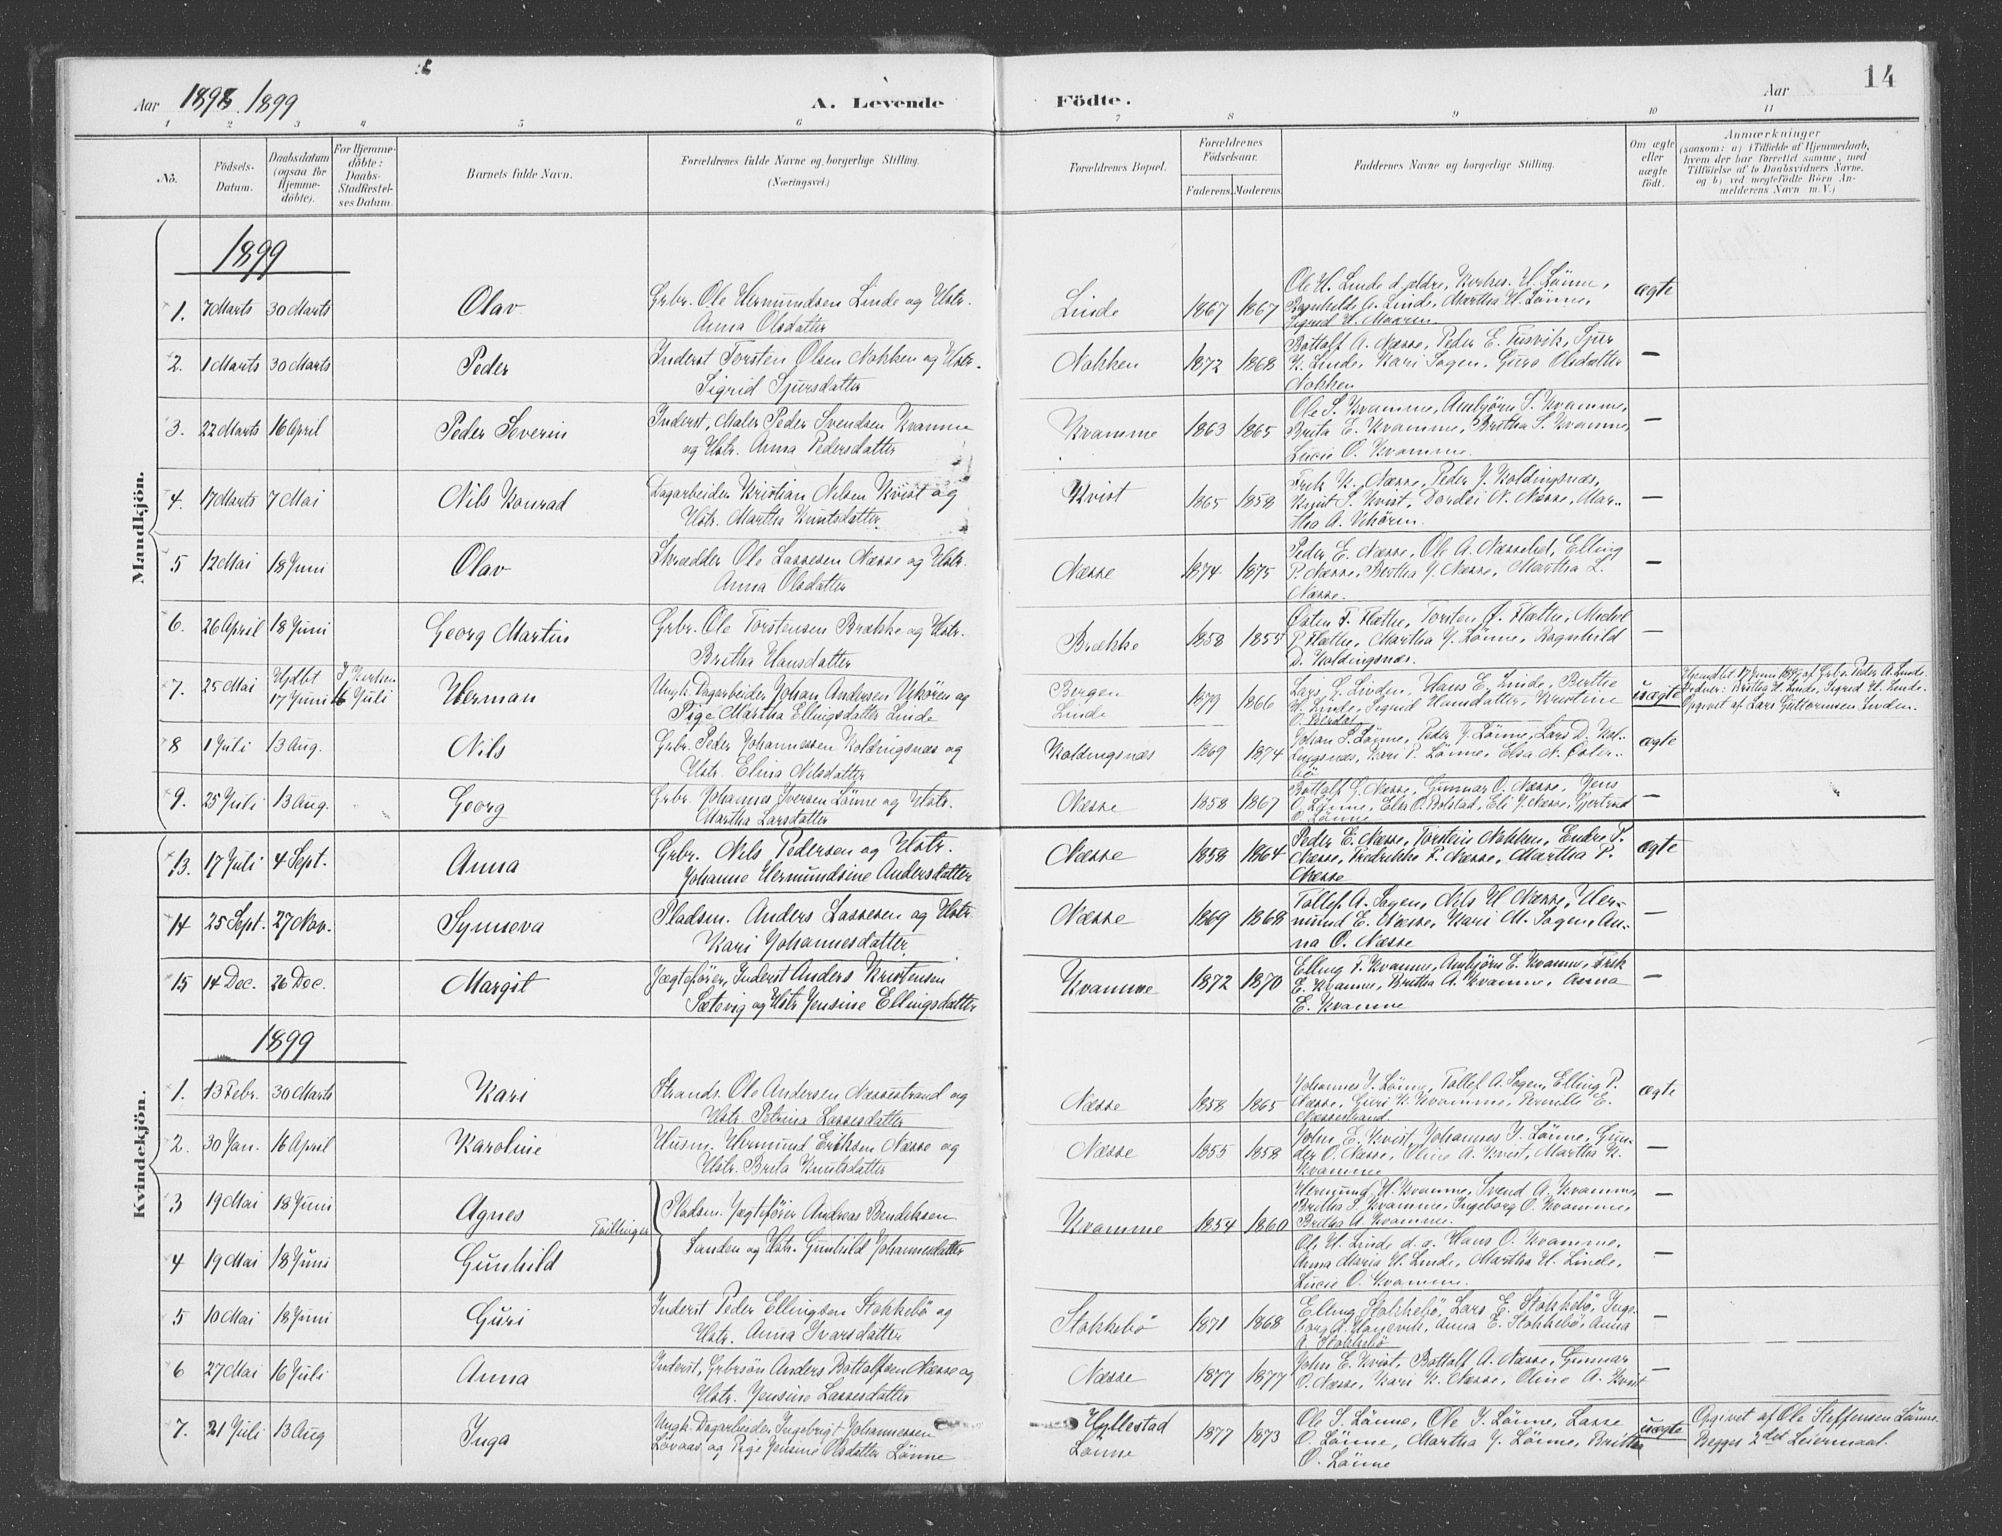 14
Aar 1898. 1899 A. Levende Födte. Aar
1 2 3 4 5 6 7 8 9 10 11
No. Födsels-Datum. Daabsdatum (ogsaa for Hjemme-döbte). For Hjemme-döbte: Daabs-Stadfæstel-ses Datum. Barnets fulde Navn. Forældrenes fulde Navne og borgerlige Stilling. (Næringsvei.) Forældrenes Bopæl. Forældrenes Födselsaar. Faderens. Moderens. Faddernes Navne og borgerlige Stilling. Om ægte eller uægte födt. Anmærkninger (saasom: a) i Tilfælde af Hjemmedaab, hvem der har forrettet samme, med Tilföielse af to Daabsvidners Navne, og b) ved uægtefödte Börn An-melderens Navn m. V.)
Mandkjön.
1899
1. 7 Marts 30 Marts Olav Grbr. Ole Hermundsen Linde og Hstr. Anna Olsdatter Linde 1867 1867 Ole H. Linde d. ældre, Johs. H. Lönne, Ragnhilde O. Linde, Martha H. Lönne, Sigrid H. Maaren. ægte
2. 1 Marts 30 Marts Peder Inderst Torsten Olsen Nokken og Hstr. Sigrid Sjursdatter Nokken 1872 1868 Bottolf A. Næsse, Peder E. Tusvik, Sjur K. Linde, Kari Sogen, Guro Olsdatter Nokken —
3. 22 Marts 16 April Peder Severin Inderst, Maler Peder Svendsen Kvamme og Hstr. Anna Pedersdatter Kvamme 1863 1865 Ole S. Kvamme, Ambjörn S. Kvamme, Brita E. Kvamme, Britha S. Kvamme, Lucie O. Kvamme. —
4. 17 Marts 7 Mai Nils Konrad Dagarbeider Kristian Nilsen Kvist og Hstr. Martha Knutsdatter Kvist 1865 1858 Erik K. Næsse, Peder J. Koldingsnæs, Knut S. Kvist, Dordei N. Næsse, Mar-tha A. —
5 12 Mai 18 Juni Olav Skrædder Ole Lassesen Næsse og Hstr. Anna Olsdatter Næsse 1874 1875 Peder E. Næsse, Ole A. Næssebet, Elling P. Næsse, Bertha J. Næsse, Martha L. Næsse. —
6. 26 April 18 Juni Georg Martin Grbr. Ole Torstensen Brække og Hstr. Britha Hansdatter Brække 1858 1855 Östen T. Flatte, Torsten Ö. Flatte, Michel P. Flatte, Martha J. Lönne, Ragnhild D. Koldingsnæs. —
7. 25 Mai Hjdbt 17 Juni I Kirken 16 Juli Herman Ungk. Dagarbeider Johan Andersen Ukören og Pige Martha Ellingsdatter Linde Bergen Linde 1879 1866 Lars G. Linden, Hans E. Linde, Berthe H. Linde, Sigrid Hansdatter, Kristine O. uægte Hjemdbt 17 Juni 1899 af Grbr. Peder A. Linde. H. Linde, Sigrid H. Linde. Opgivet af Lars Guttormsen Linden.
8 1 Juli 13 Aug. Nils Grbr. Peder Johannessen Koldingsnæs og Hstr. Elina Nilsdatter Koldingsnæs 1869 1874 Johan S. Lönne, Peder J. Lönne, Lars D. Kol-dingsnæs, Kari P. Lönne, Elsa N. Öster-bö ægte
9. 25 Juli 13 Aug. Georg Grbr. Johannes Iversen Lönne og Hstr. Martha Larsdatter Næsse 1858 1867 Bottolf O. Næsse, Gunnar O. Næsse, Jens O. Lönne, Else O. Bolstad, Eli J. Næsse, Gjertrud O. Lönne —
Kvindekjön.
13. 17 Juli 4 Sept. Anna Grbr. Nils Pedersen og Hstr. Johanne Hermundsine Andersdatter Næsse 1858 1864 Peder E. Næsse, Torstein Nokken, Endre S. Næsse, Fredrikke F. Næsse, Martha P. Næsse ægte
14 25 Sept. 27 Nov. Synneva Pladsm. Anders Lassesen og Hstr. Kari Johannesdatter Næsse 1869 1868 Tollef A. Sogen, Nils H. Næsse, Her-mund E. Næsse, Kari M. Sogen, An-na O. Næsse —
15 14 Dec. 26 Dec. Margit Jægtefører, Inderst Anders Kristensen Sætevig og Hstr. Jensine Ellingsdatter Kvamme 1872 1870 Elling F. Kvamme, Ambjörn E. Kvamme, Erik E. Kvamme, Britha A. Kvamme, Anna E. Kvamme —
1899
1. 13 Febr. 30 Marts Kari Strands. Ole Andersen Næssestrand og Hstr. Petrina Lassesdatter Næsse 1858 1865 Johannes I. Lönne, Tollef A. Sogen, Elling P. Næsse, Guri K. Kvamme, Pernille E. Næssestrand. ægte
2. 30 Jan. 16 April Karoline Husm. Hermund Eriksen Næsse og Hstr. Brita Knutsdatter Næsse 1855 1858 John E. Kvist, Johannes I. Lönne, Gun-der O. Næsse, Oline A. Kvist, Martha K. Kvamme —
3 19 Mai 18 Juni Agnes Tvillinger Pladsm. Jægtefører Andreas Bendiksen Sanden og Hstr. Gunhild Johannesdatter Kvamme 1854 1860 Hermund H. Kvamme, Svend A. Kvamme, Britha S. Kvamme, Ingeborg O. Kvamme, Britha A. Kvamme. —
4 19 Mai 18 Juni Gunhild Ole H. Linde d. æ. Hans O. Kvamme, Anna Maria H. Linde, Martha H. Linde, Lucie O. Kvamme. —
5 10 Mai 18 Juni Guri Inderst Peder Ellingsen Stokkebö og Hstr. Anna Ivarsdatter Stokkebö 1871 1868 Elling Stokkebö, Lars E. Stokkebö, Inge-borg O. Anna E. Stokkebö, Anna A. Stokkebö —
6 27 Mai 16 Juli Anna Inderst, Grbrsön Anders Bottolfsen Næsse og Hstr. Jensine Lassesdatter Næsse 1877 1877 John E. Kvist, Bottolf A. Næsse, Gunnar O. Næsse, Kari K. Næsse, Oline A. Kvist —
7. 21 Juli 13 Aug Inga Ungk. Dagarbeider Ingebrigt Johannessen Lövaas og Pige Jensine Olsdatter Lönne Hyllestad Lönne 1877 1873 Ole S. Lönne, Ole I. Lönne, Lasse O. Lönne, Martha J. Lönne, Britha O. Lönne uægte Opgivet af Ole Steffensen Lönne. Begges 2det Leiermaal.